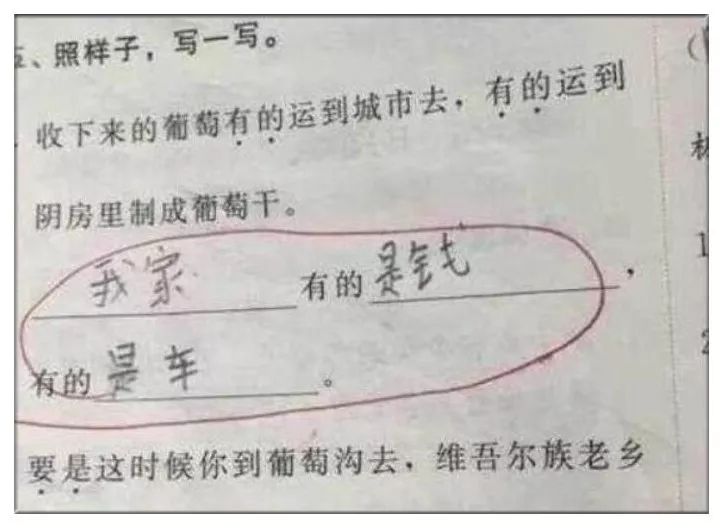 、照样子，写一写。
收下来的葡萄有的运到城市去，有的运到
阴房里制成葡萄干。
我家有的是钱，
有的是车。
要是这时候你到葡萄沟去，维吾尔族老乡